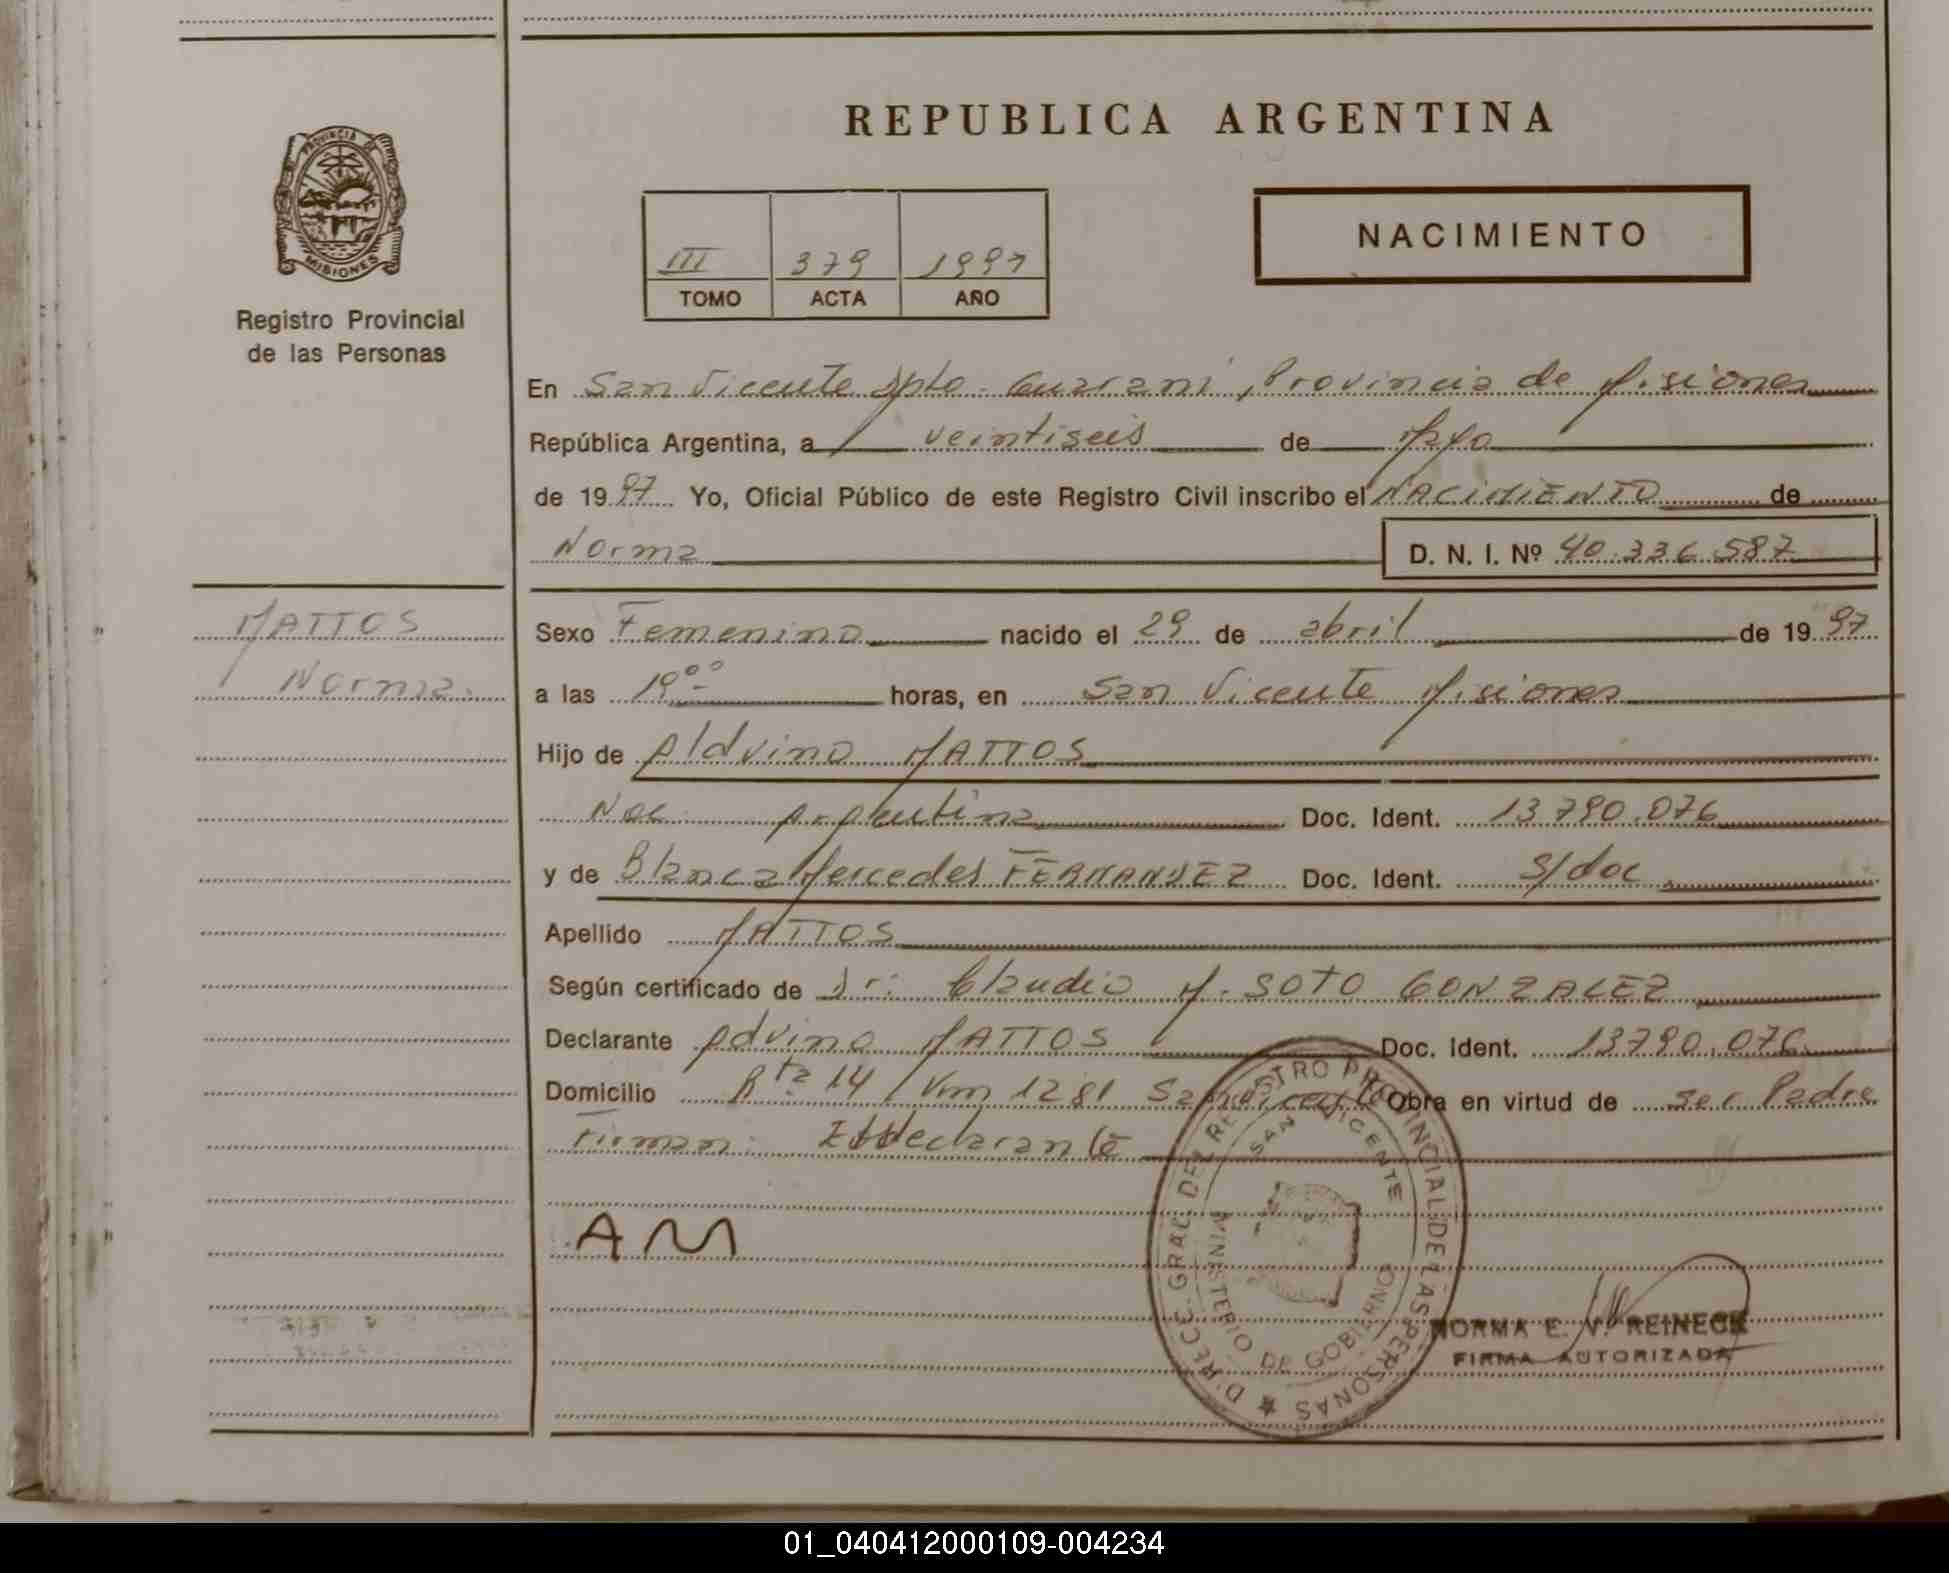 REPUBLICA ARGENTINA
PROVINCIA DE
MISIONES
Registro Provincial
de las Personas
III 379 1997
TOMO ACTA AÑO
NACIMIENTO
En San Vicente Dpto. Guarani, Provincia de Misiones
República Argentina, a veintiseis de Mayo
de 1997 Yo, Oficial Público de este Registro Civil inscribo el NACIMIENTO de
Norma D. N. I. Nº 40.336.587
MATTOS
Norma.
Sexo Femenino nacido el 29 de abril de 1997
a las 19⁰⁰ horas, en San Vicente Misiones
Hijo de Aldvino MATTOS
Nac. Argentina Doc. Ident. 13.790.076
y de Blanca Mercedes FERNANDEZ Doc. Ident. S/doc
Apellido MATTOS
Según certificado de Dr. Claudio M. SOTO GONZALEZ
Declarante Advino MATTOS Doc. Ident. 13790.076
Domicilio Rta 14 Km 1281 San Vicente Obra en virtud de ser Padre
Firman: El declarante
AM
DIRECC. GRAL. DEL REGISTRO PROVINCIAL DE LAS PERSONAS
SAN VICENTE
MINISTERIO DE GOBIERNO
NORMA E. V. REINECK
FIRMA AUTORIZADA
01_040412000109-004234